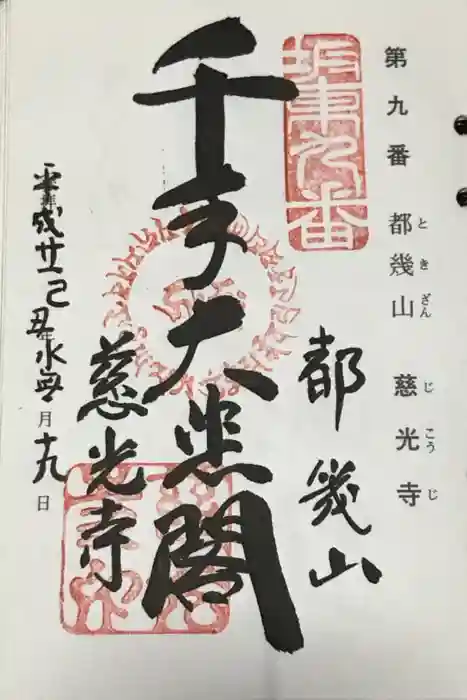 第九番 都幾山 慈光寺
ときざん じこうじ
坂東九番
都幾山
千手大悲閣
慈光寺
平成廿一己丑年水無月十九日